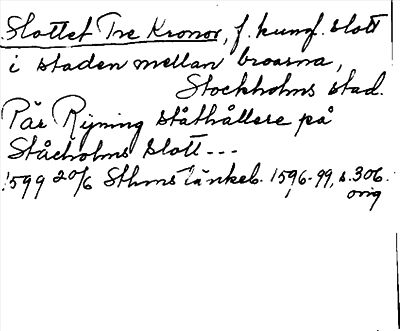 Slottet Tre Kronor, f. kungl. slott
i staden mellan broarna,
Stockholms stad.
Pär Rijning ståthållere på
Ståcholms slott---
1599 20/6 Sthms tänkeb. 1596-99, s. 306.
orig